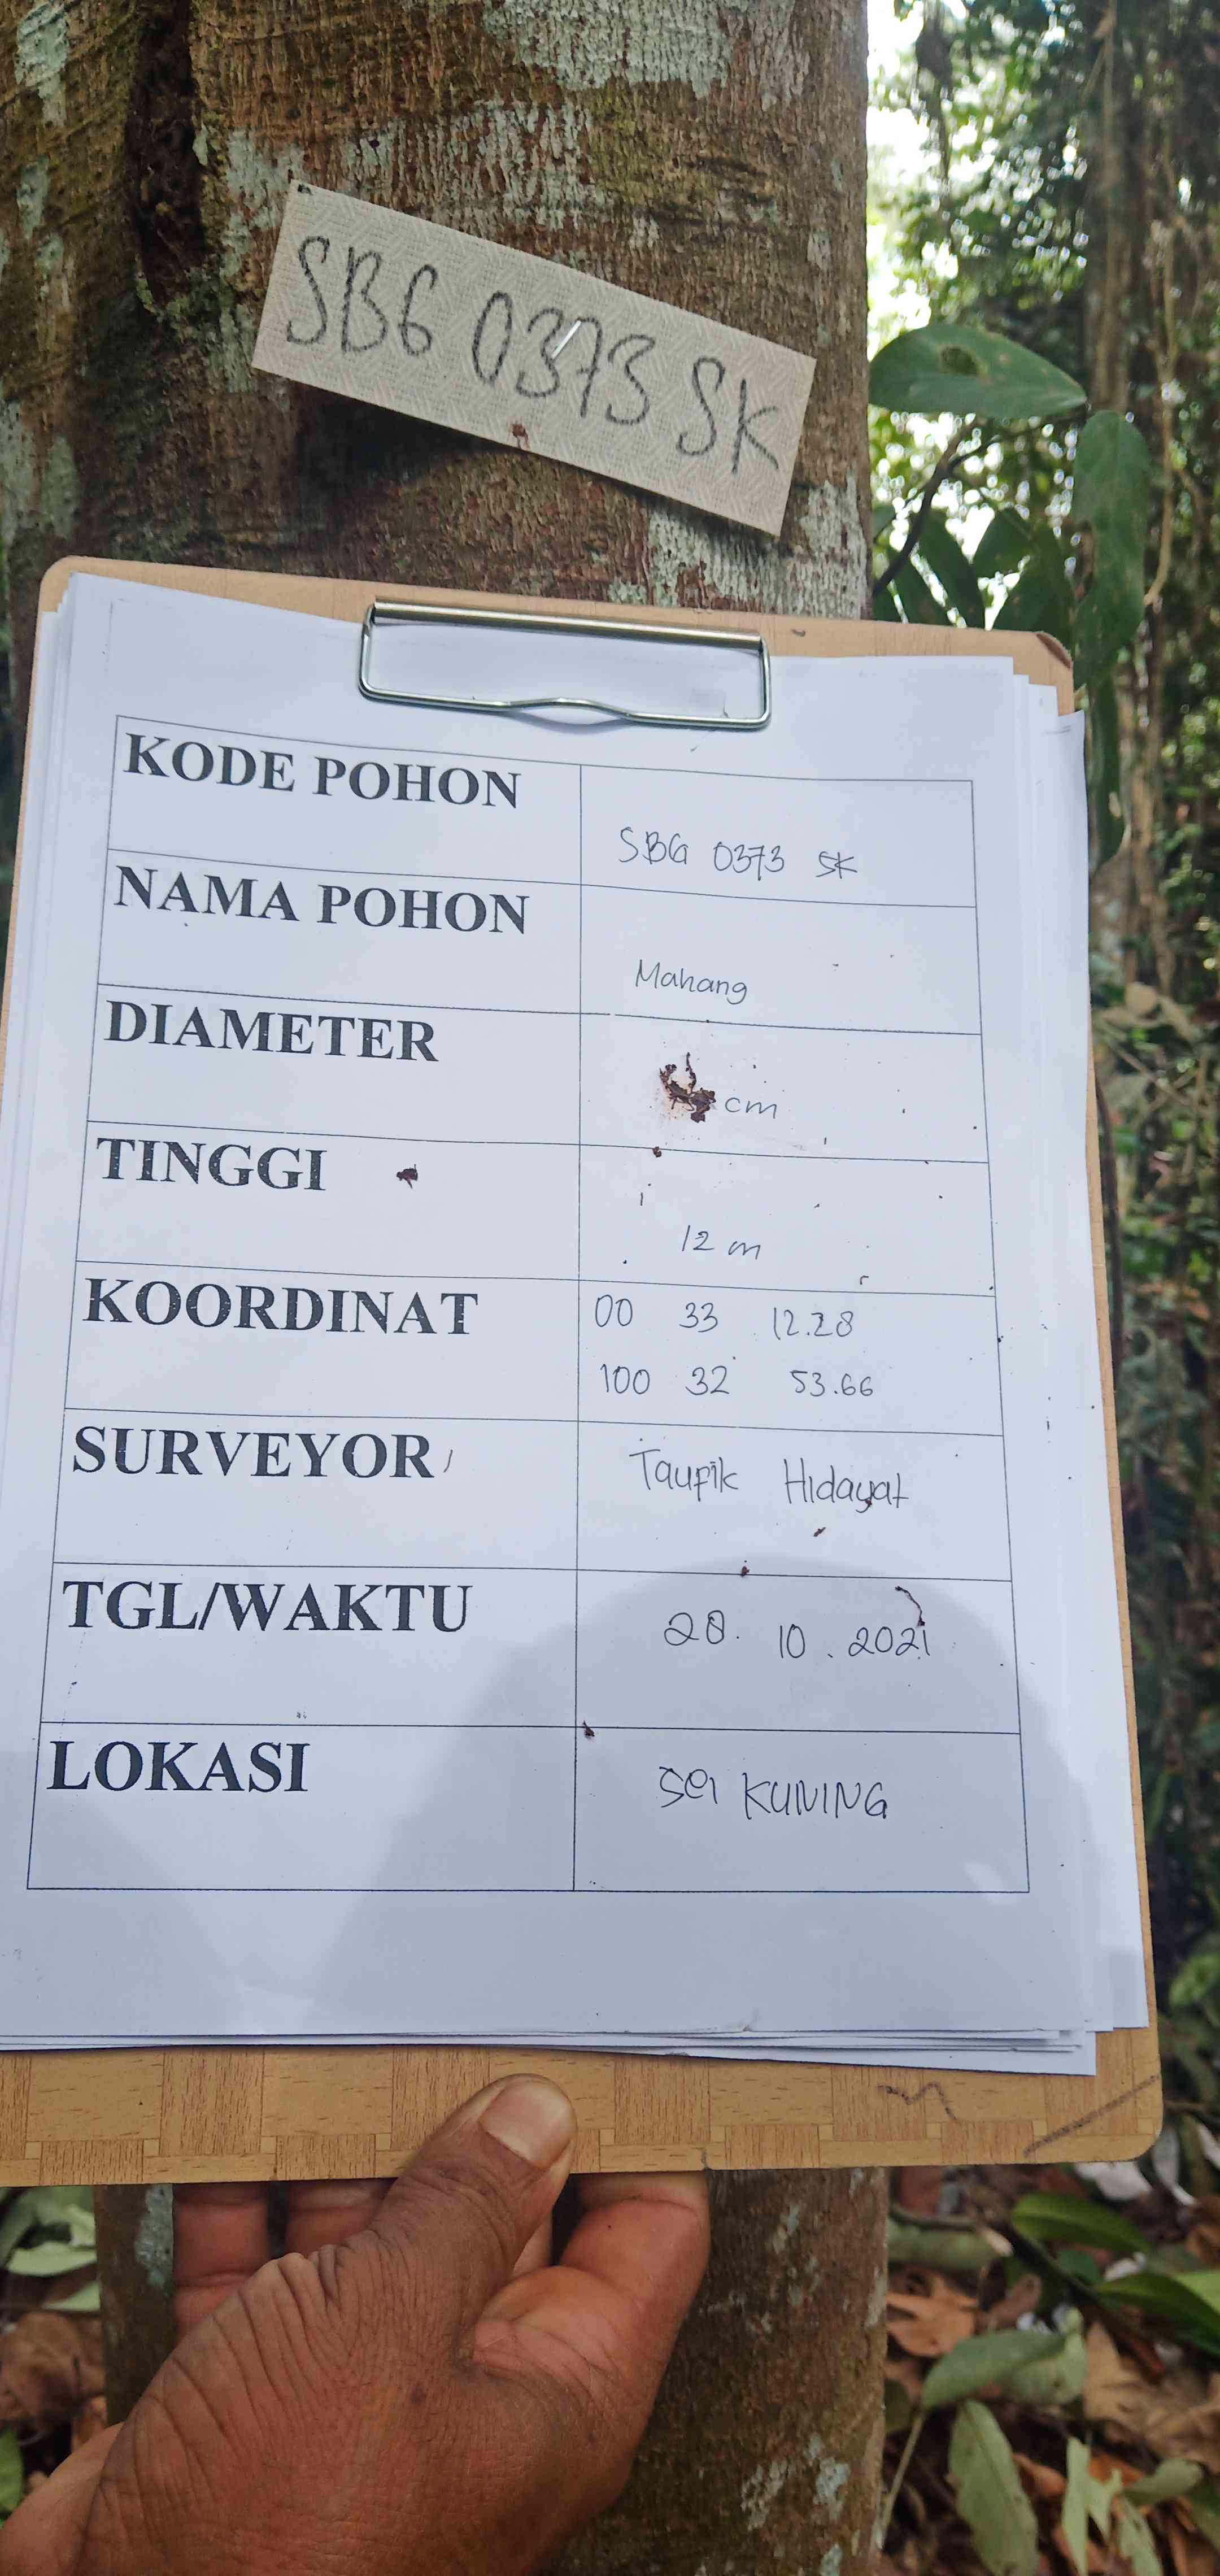 SBG 0373 SK
KODE POHON
SBG 0373 SK
NAMA POHON
Mahang
DIAMETER
cm
TINGGI
12 m
KOORDINAT
00 33 12.28
100 32 53.66
SURVEYOR
Taufik Hidayat
TGL/WAKTU
28. 10. 2021
LOKASI
Sei KUNING